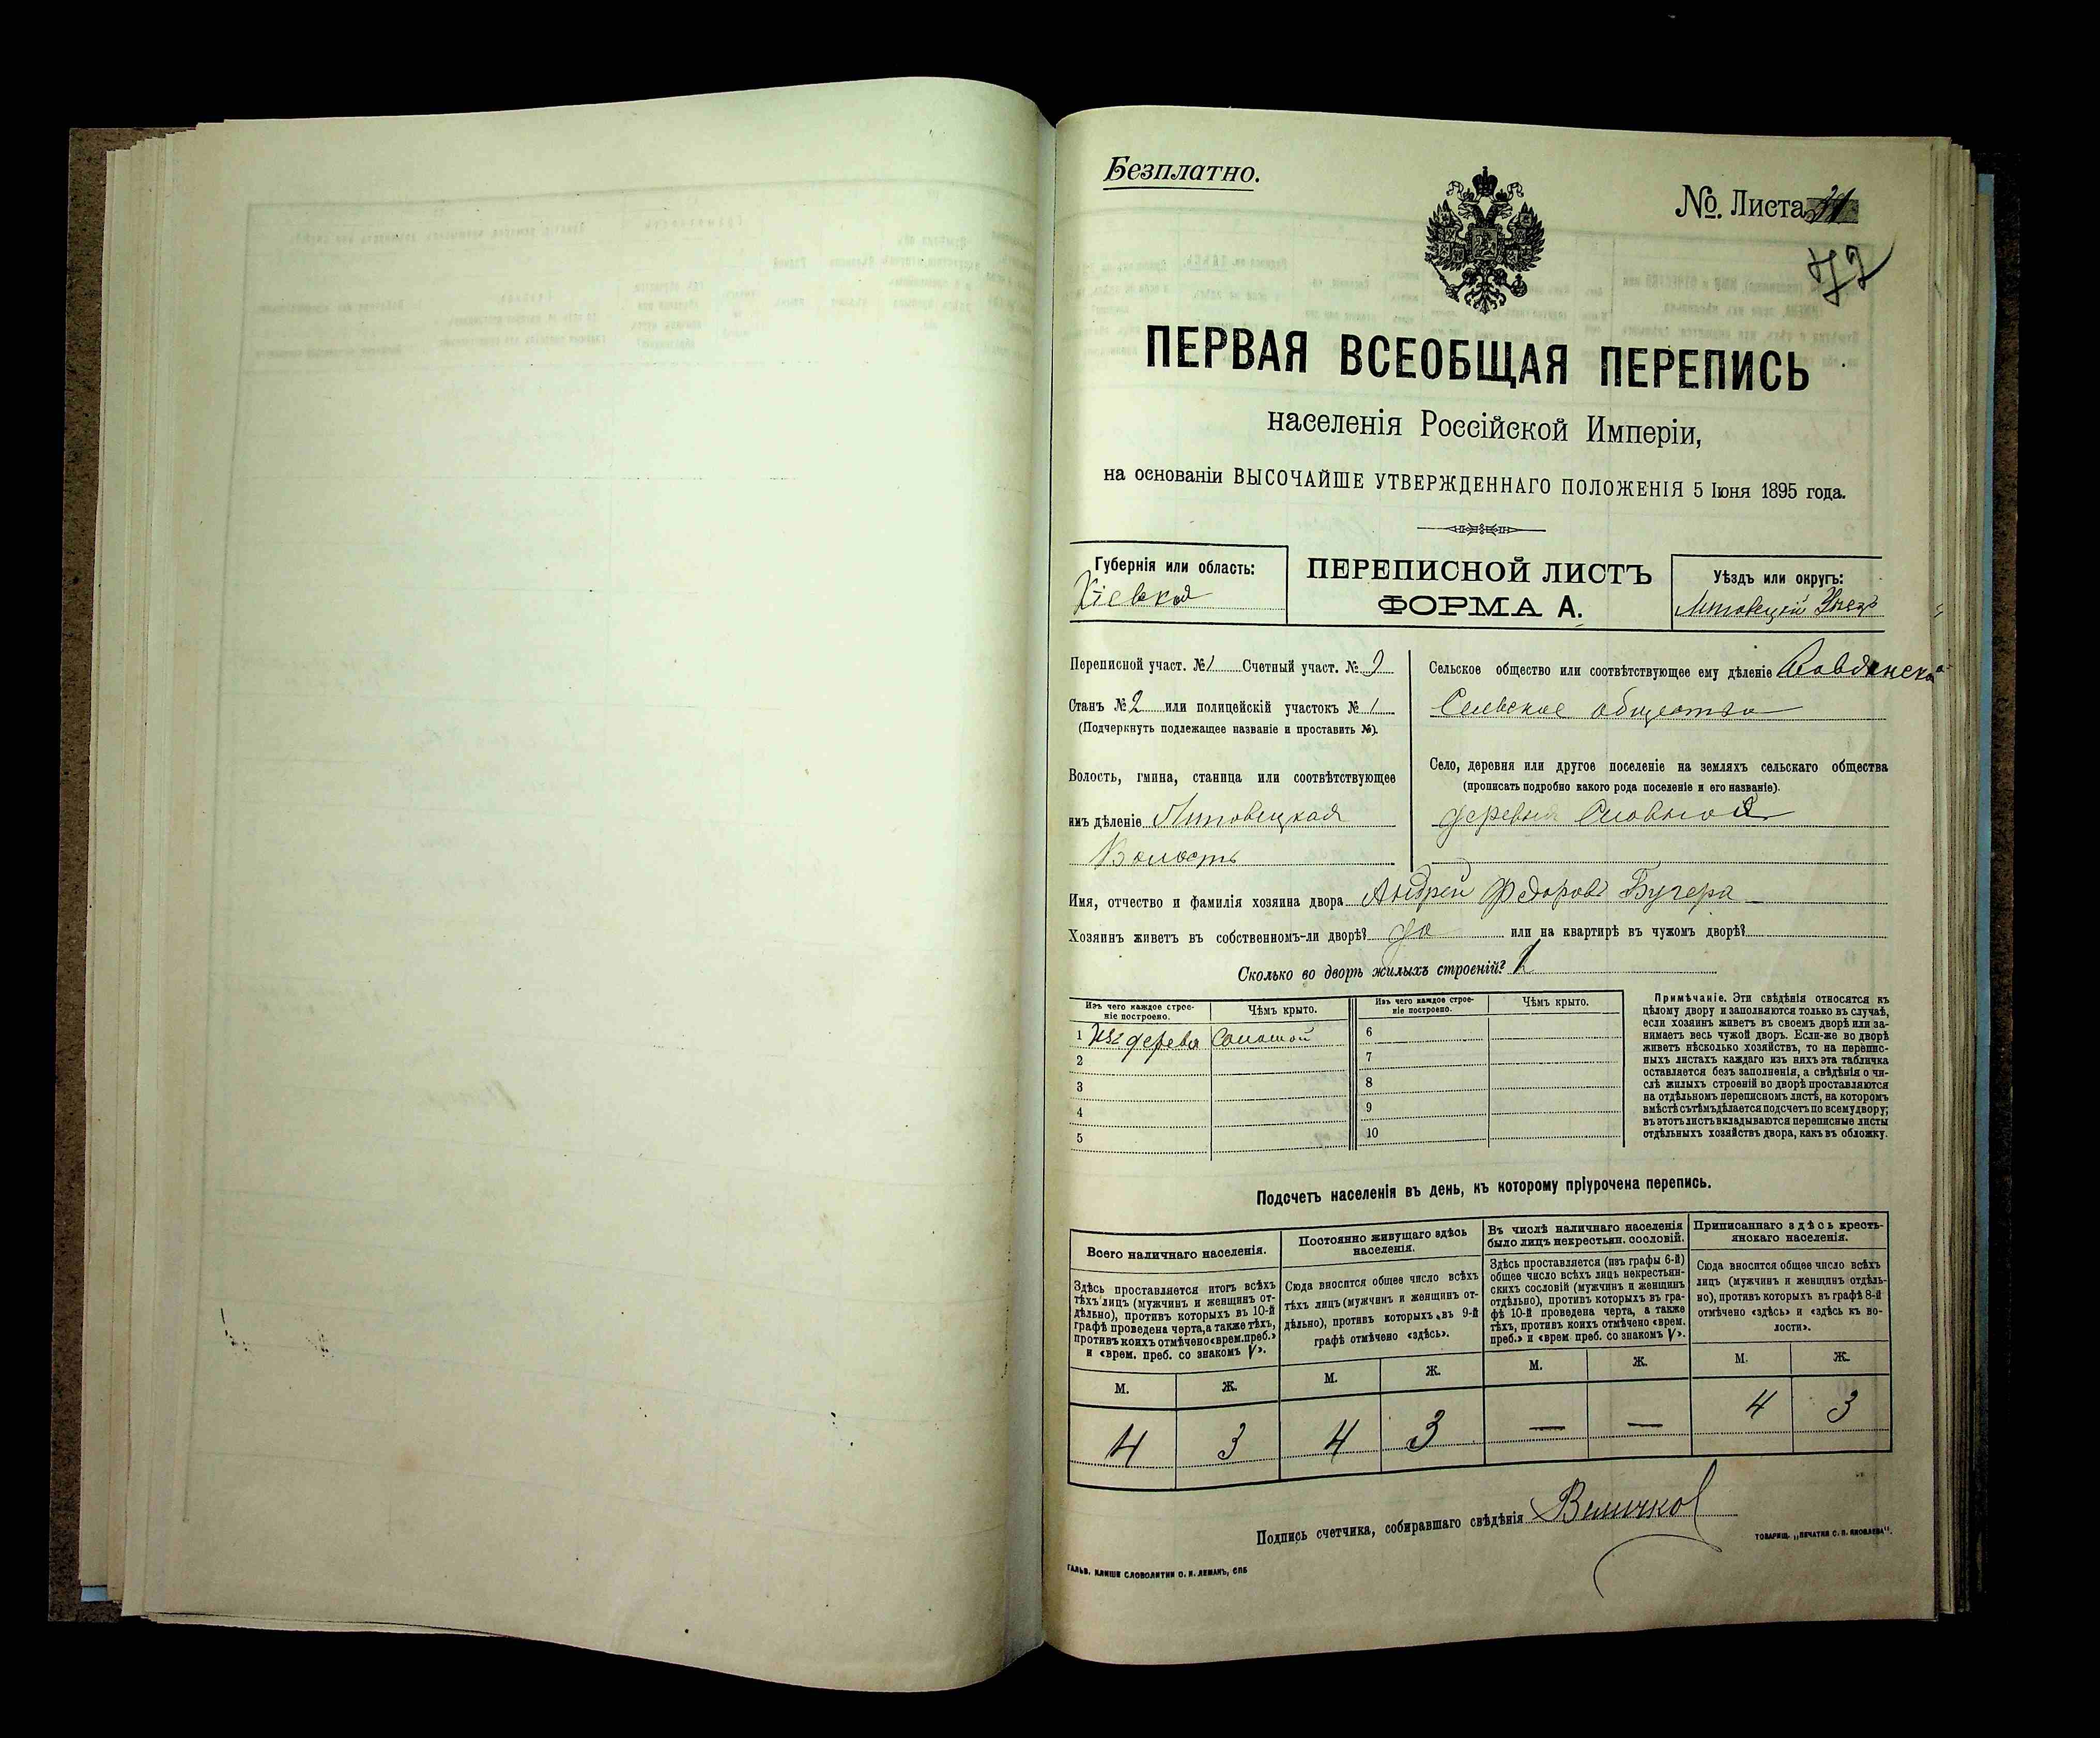 Безплатно.
№. Листа 31
72
ПЕРВАЯ ВСЕОБЩАЯ ПЕРЕПИСЬ
населенія Россійской Имперіи,
на основаніи ВЫСОЧАЙШЕ УТВЕРЖДЕННАГО ПОЛОЖЕНІЯ 5 Іюня 1895 года.
Губернія или область:
Кіевская
ПЕРЕПИСНОЙ ЛИСТЪ
ФОРМА А.
Уѣздъ или округъ:
Липовецкій Уѣздъ
Переписной участ. № 1 Счетный участ. № 9
Станъ № 2 или полицейскій участокъ № 1
(Подчеркнуть подлежащее названіе и проставить №).
Волость, гмина, станица или соотвѣтствующее
имъ дѣленіе Липовецкая
Волость
Сельское общество или соотвѣтствующее ему дѣленіе
Сельское общество
Село, деревня или другое поселеніе на земляхъ сельскаго общества
(прописать подробно какого рода поселеніе и его названіе).
деревня
Имя, отчество и фамилія хозяина двора Андрей Федоровъ Бугера
Хозяинъ живетъ въ собственномъ-ли дворѣ? да или на квартирѣ въ чужомъ дворѣ?
Сколько во дворѣ жилыхъ строеній? 1
Изъ чего каждое строе-
ніе построено.
Чѣмъ крыто.
Изъ чего каждое строе-
ніе построено.
Чѣмъ крыто.
1 Изъ дерева Соломой
2
3
4
5
6
7
8
9
10
Примѣчаніе. Эти свѣдѣнія относятся къ
цѣлому двору и заполняются только въ случаѣ,
если хозяинъ живетъ въ своемъ дворѣ или за-
нимаетъ весь чужой дворъ. Если-же во дворѣ
живетъ нѣсколько хозяйствъ, то на перепис-
ныхъ листахъ каждаго изъ нихъ эта табличка
оставляется безъ заполненія, а свѣдѣнія о чи-
слѣ жилыхъ строеній во дворѣ проставляются
на отдѣльномъ переписномъ листѣ, на которомъ
вмѣстѣ съ тѣмъ дѣлается подсчетъ по всему двору;
въ этотъ листъ вкладываются переписные листы
отдѣльныхъ хозяйствъ двора, какъ въ обложку.
Подсчетъ населенія въ день, къ которому пріурочена перепись.
Всего наличнаго населенія.
Здѣсь проставляется итогъ всѣхъ
тѣхъ лицъ (мужчинъ и женщинъ от-
дѣльно), противъ которыхъ въ 10-й
графѣ проведена черта, а также тѣхъ,
противъ коихъ отмѣчено «врем. преб.»
и «врем. преб. со знакомъ V».
Постоянно живущаго здѣсь
населенія.
Сюда вносится общее число всѣхъ
тѣхъ лицъ (мужчинъ и женщинъ от-
дѣльно), противъ которыхъ въ 9-й
графѣ отмѣчено «здѣсь».
Въ числѣ наличнаго населенія
было лицъ некрестьян. сословій.
Здѣсь проставляется (изъ графы 6-й)
общее число всѣхъ лицъ некрестьян-
скихъ сословій (мужчинъ и женщинъ
отдѣльно), противъ которыхъ въ гра-
фѣ 10-й проведена черта, а также
тѣхъ, противъ коихъ отмѣчено «врем.
преб.» и «врем преб. со знакомъ V».
Приписаннаго здѣсь кресть-
янскаго населенія.
Сюда вносится общее число всѣхъ
лицъ (мужчинъ и женщинъ отдѣль-
но), противъ которыхъ въ графѣ 8-й
отмѣчено «здѣсь» и «здѣсь къ во-
лости».
М. Ж. М. Ж. М. Ж. М. Ж.
4 3 4 3 — — 4 3
Подпись счетчика, собиравшаго свѣдѣнія Величко
ГАЛЬВ. КЛИШЕ СЛОВОЛИТНИ О. И. ЛЕМАНЪ, СПБ
ТОВАРИЩ. „ПЕЧАТНЯ С. П. ЯКОВЛЕВА".